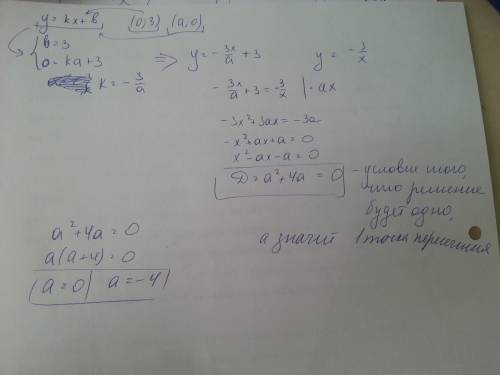 y = kx + b    (0;3)    (a;0)
{ b = 3
0 = ka + 3
k = -3/a
=> y = -3x/a + 3    y = -3/x
-3x/a + 3 = -3/x | · ax
-3x² + 3ax = -3a
-x² + ax + a = 0
x² - ax - a = 0
D = a² + 4a = 0 - условие того,
что решение
будет одно,
а значит 1 точка пересечения
a² + 4a = 0
a(a+4) = 0
a = 0 | a = -4